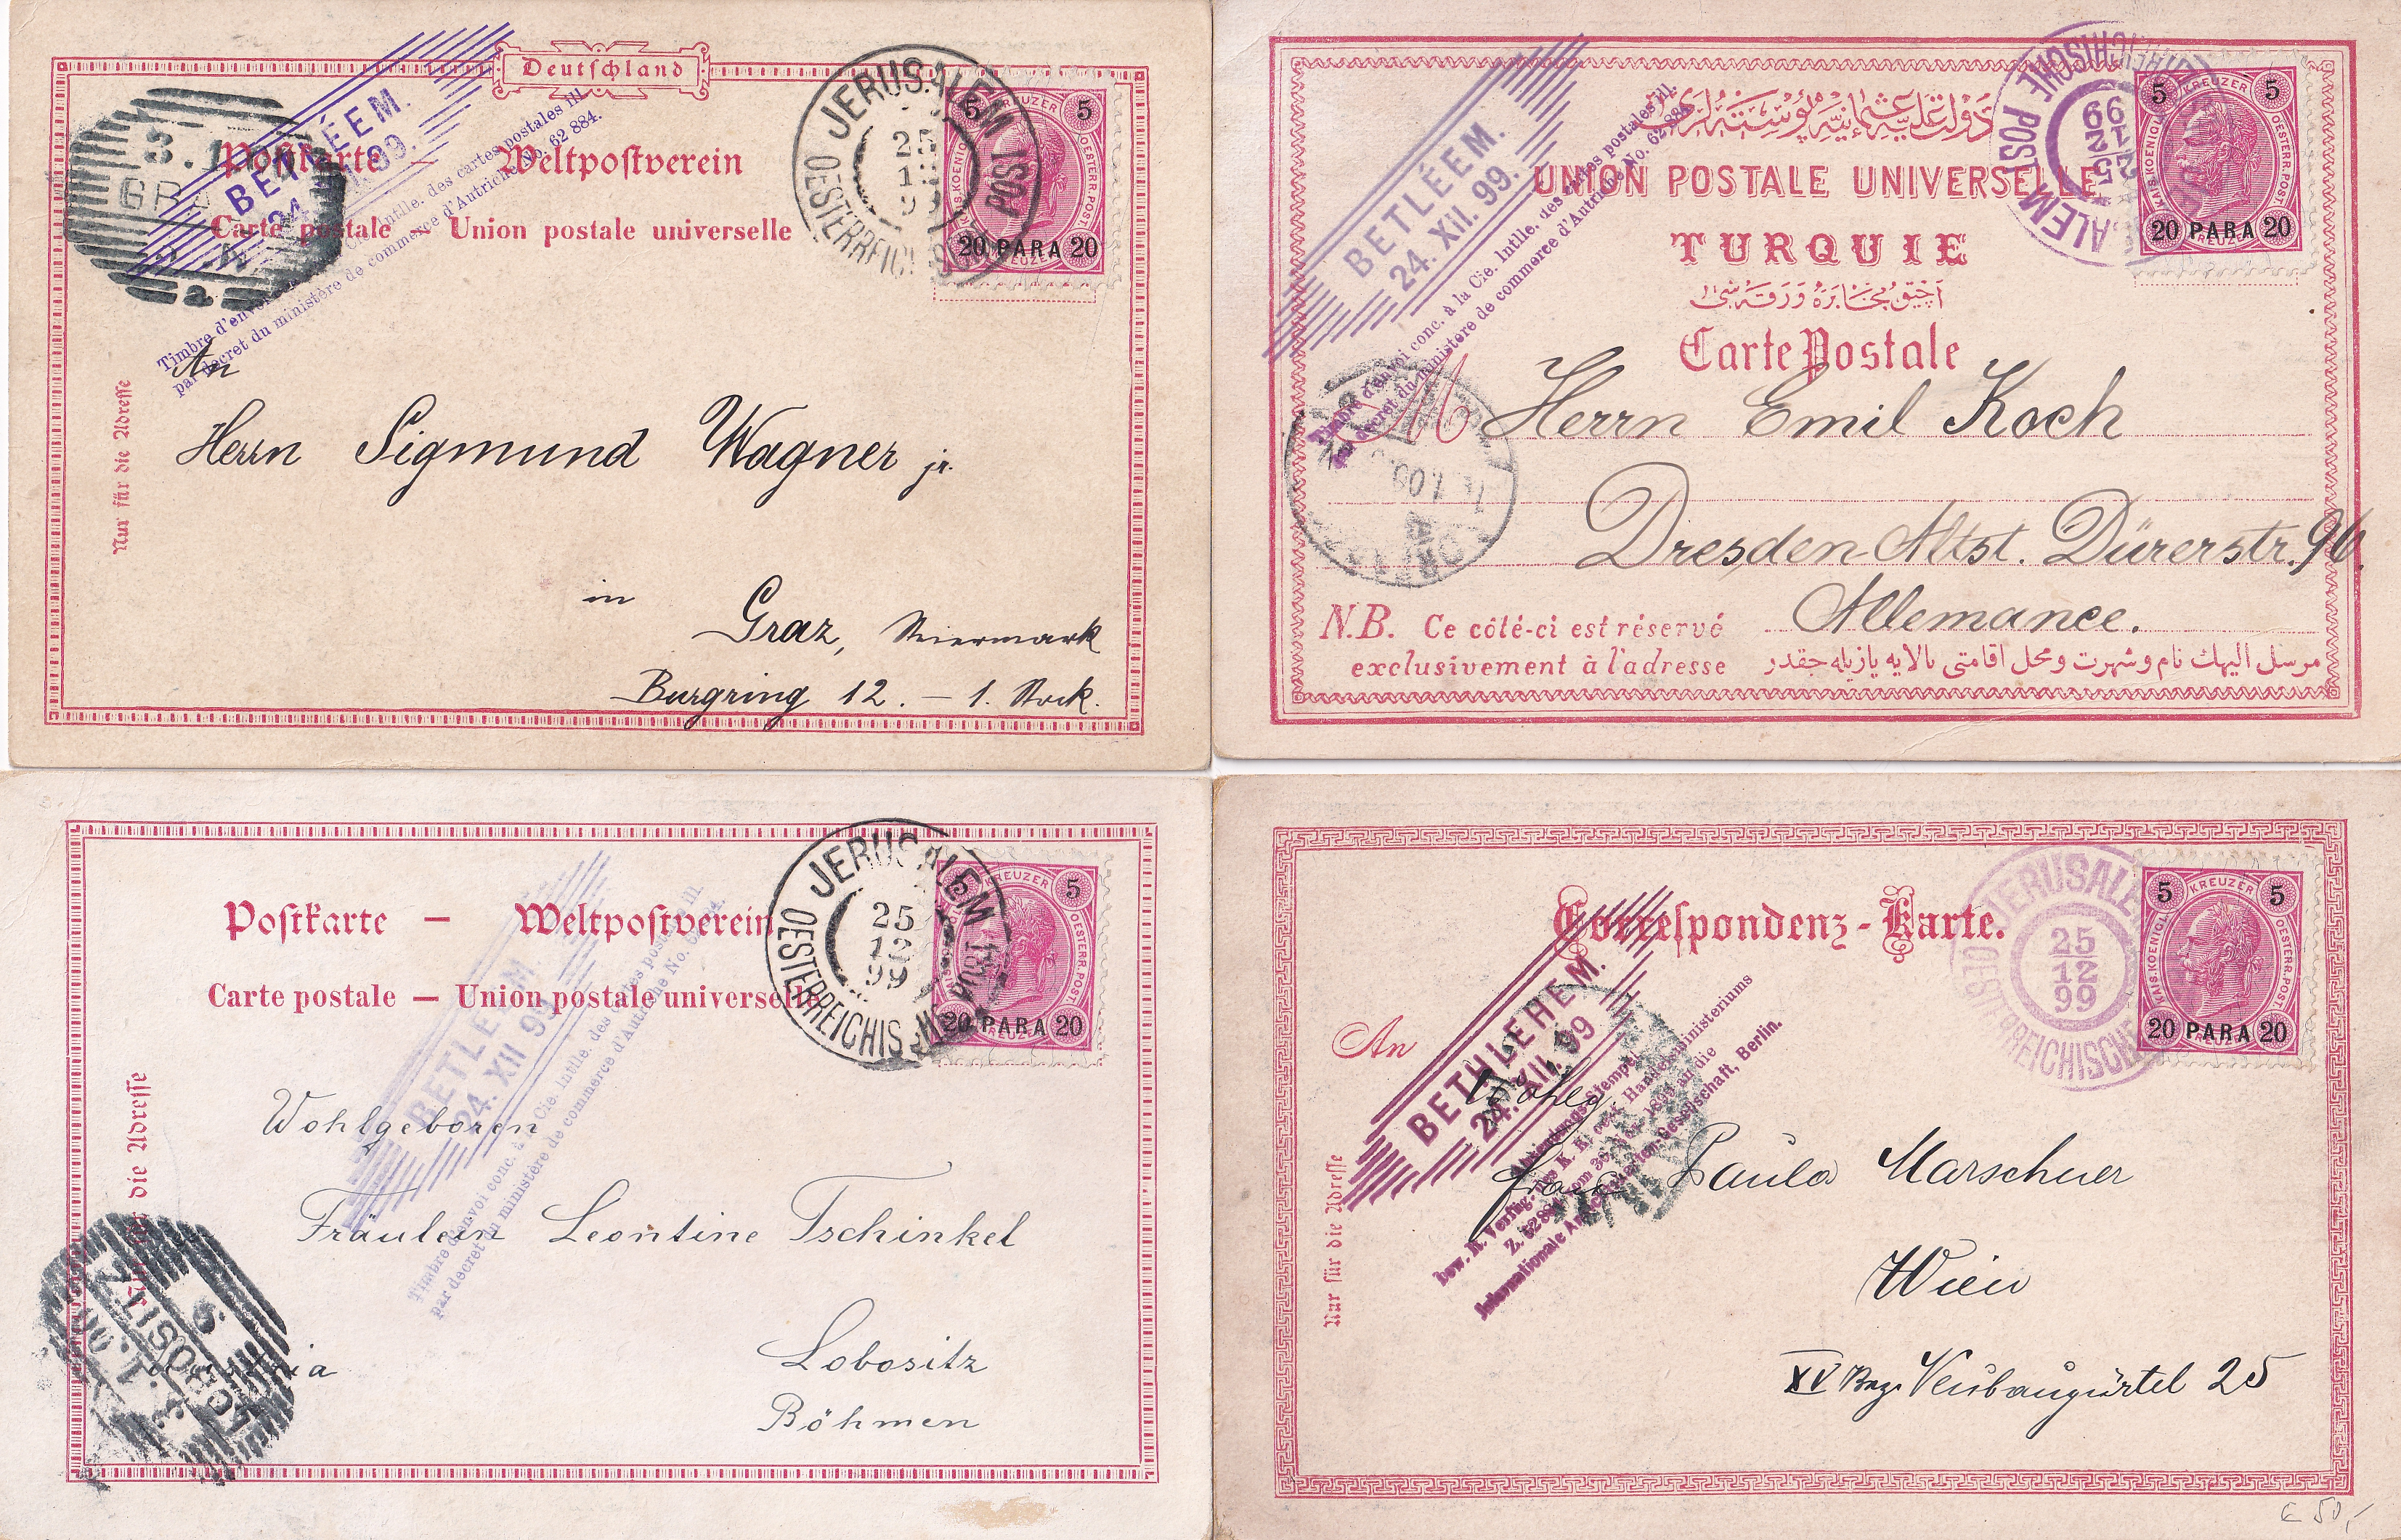 Deutschland
Postkarte — Weltpostverein
Carte postale — Union postale universelle
BETLÉEM.
24. XII. 99.
Timbre d'envoi conc. à la Cie. Intlle. des cartes postales ill.
par decret du ministère de commerce d'Autriche No. 62 884.
JERUSALEM
25
12
99
OESTERREICHISCHE POST
5 KREUZER 5
KAIS. KOENIGL. OESTERR. POST.
20 PARA 20
An
Herrn Sigmund Wagner jr.
in
Graz, Steiermark
Burgring 12. — 1. Stock.
Nur für die Adresse
UNION POSTALE UNIVERSELLE
TURQUIE
Carte Postale
BETLÉEM.
24. XII. 99.
Timbre d'envoi conc. à la Cie. Intlle. des cartes postales ill.
par decret du ministère de commerce d'Autriche No. 62 884.
JERUSALEM
25
12
99
OESTERREICHISCHE POST
5 KREUZER 5
KAIS. KOENIGL. OESTERR. POST.
20 PARA 20
M Herrn Emil Koch
Dresden-Altst. Dürerstr. 96.
Allemance.
N.B. Ce côté-ci est réservé
exclusivement à l'adresse
مرسل اليهك نام و شهرت و محل اقامتى بالايه يازيله جقدر
Postkarte — Weltpostverein
Carte postale — Union postale universelle
BETLÉEM.
24. XII 99.
Timbre d'envoi conc. à la Cie. Intlle. des cartes postales ill.
par decret du ministère de commerce d'Autriche No. 62 884.
JERUSALEM
25
12
99
OESTERREICHISCHE POST
5 KREUZER 5
OESTERR. POST.
20 PARA 20
Wohlgeboren
Fräulein Leontine Tschinkel
Lobositz
Böhmen
Austria
Nur für die Adresse
LOBOSITZ
Correspondenz-Karte.
BETHLEHEM.
24. XII. 99
Abfindungs-Stempel
bew. lt. Verfüg. des K. K. oest. Handelsministeriums
Z. 62884 vom 30. 1899 an die
Internationale Ansichtskarten-Gesellschaft, Berlin.
JERUSALEM
25
12
99
OESTERREICHISCHE
5 KREUZER 5
KAIS. KOENIGL. OESTERR. POST.
20 PARA 20
An
Wohlg.
Frau Paula Marschner
Wien
XV Bez. Neubaugürtel 25
Nur für die Adresse
€ 50,-